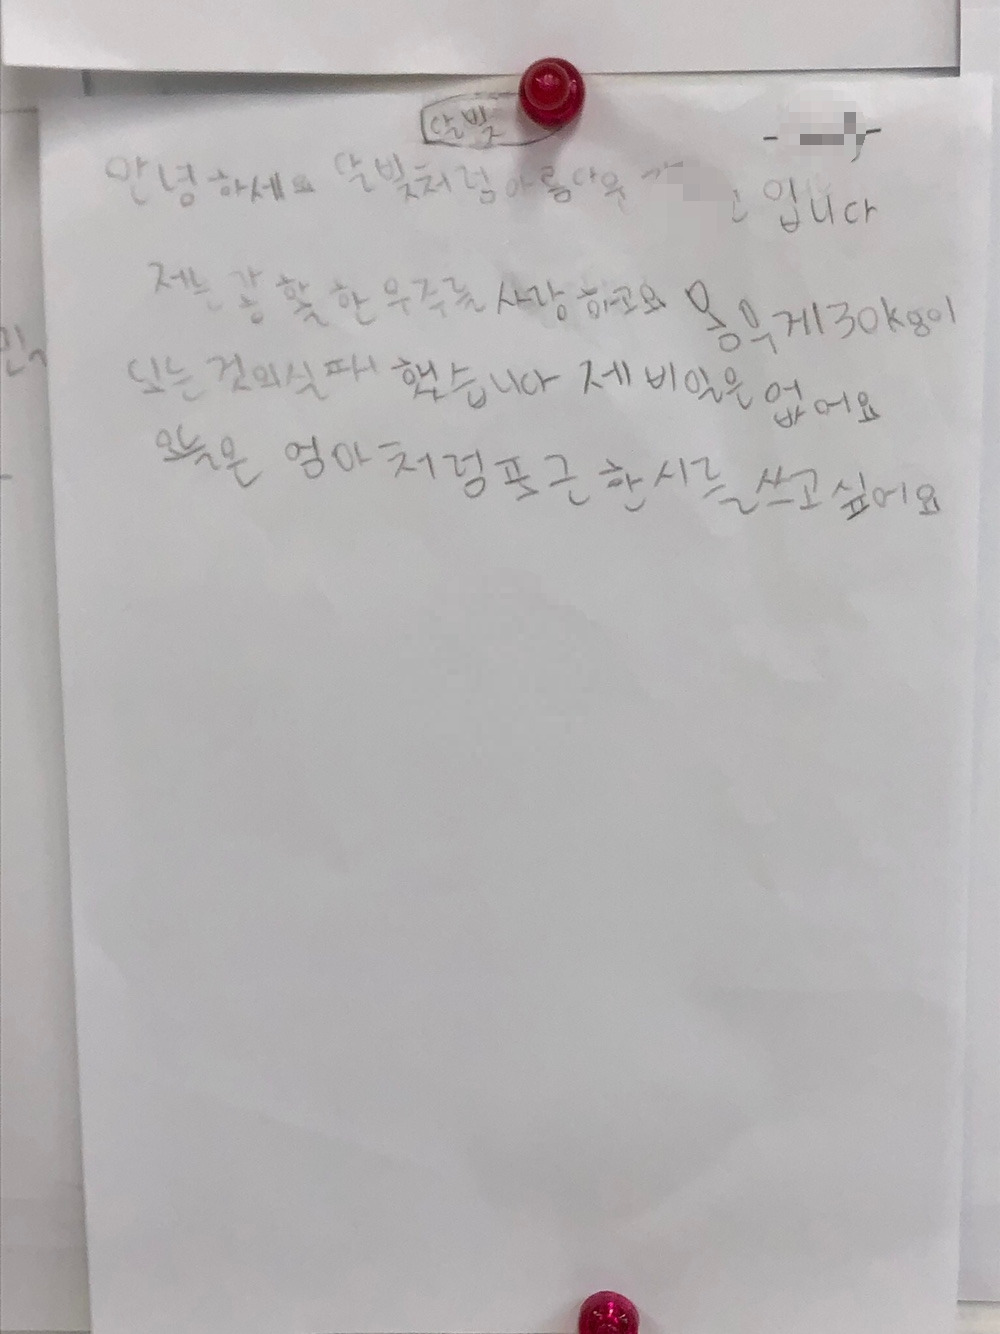 달빛
안녕하세요 달빛처럼 아름다운 입니다
저는 광활한 우주를 사랑하고요 몸무게 30kg이
되는 것의 실패 했습니다 제 비밀은 없어요
오늘은 엄마처럼 포근한 시를 쓰고 싶어요